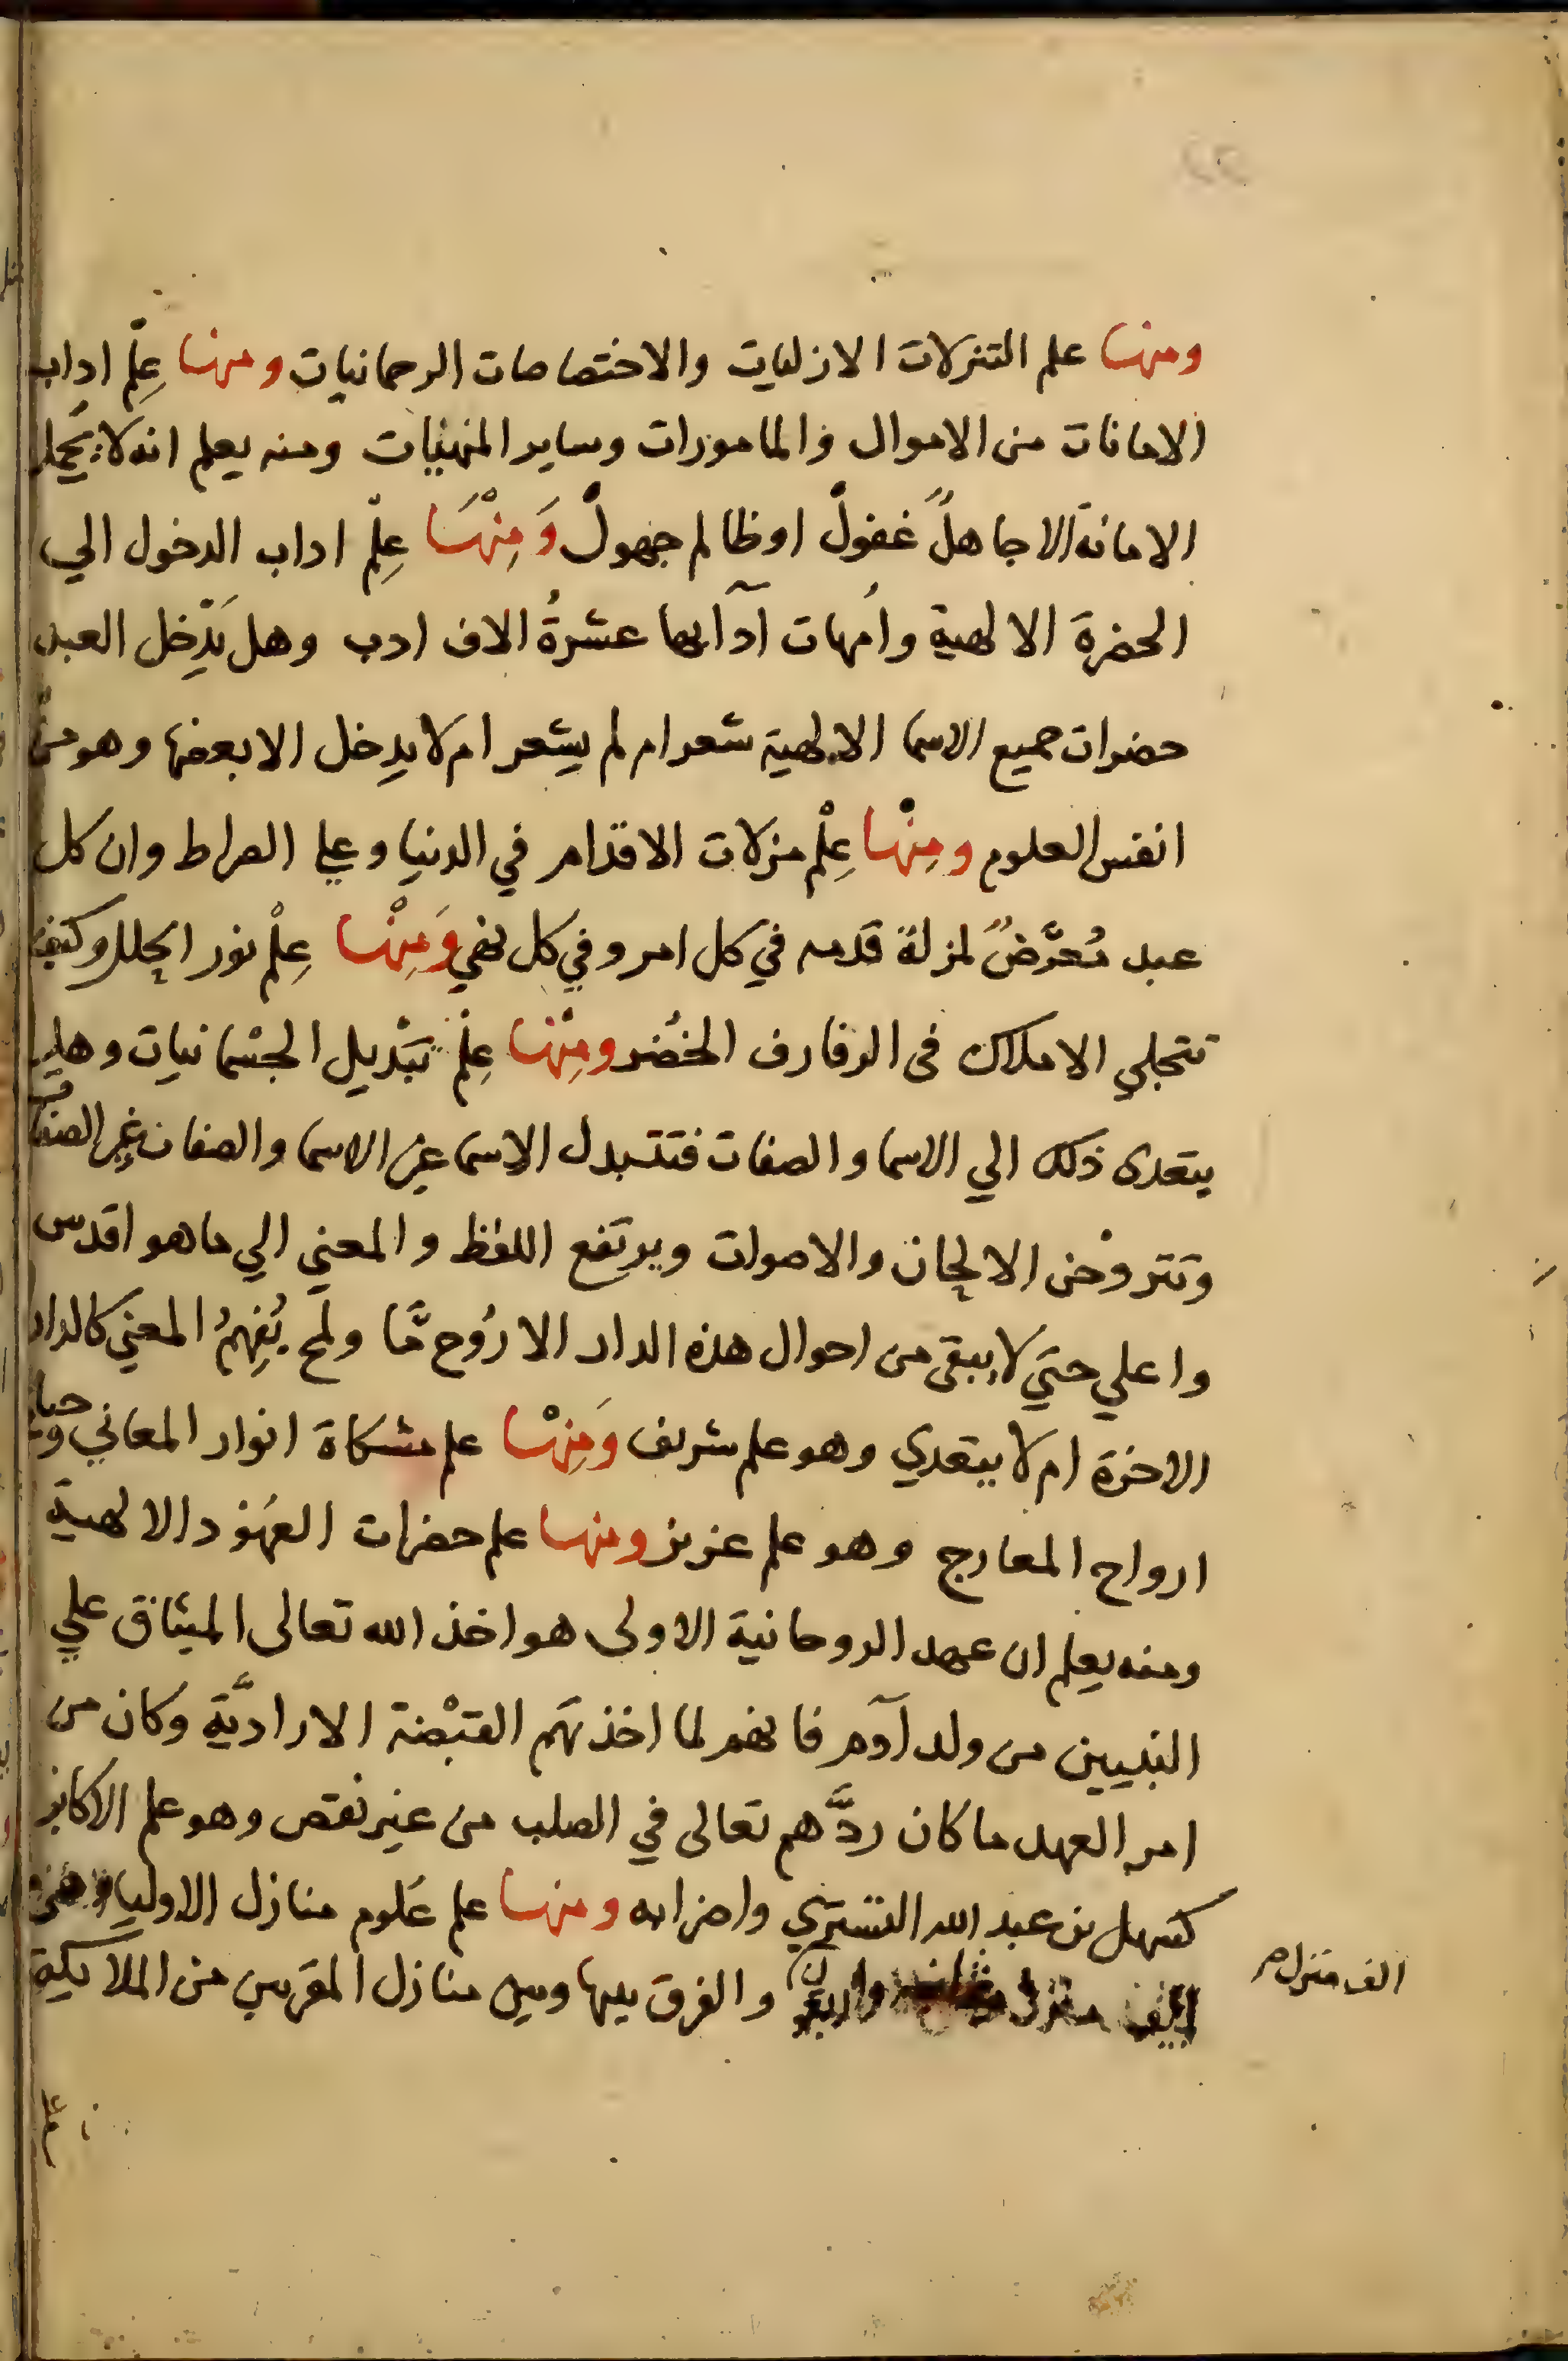 ومنها علم التنزلات الازليات والاختصاصات الرحمانيات ومنها عِلْم اداب
الامانات من الاموال والمامورات وساير المنهيات ومنه يعلم انه لا يَحمل
الامانة الا جاهلٌ غفولٌ اوظالم جهولٌ وَمِنْهَا عِلْم اداب الدخول الي
الحضرة الالهية وامهات آدابها عشرةُ الاف ادب وهل يَدْخل العبد
حضرات جميع الاسما الالهية شعر ام لم يشعر ام لا يدخل الا بعضها وهو من
انفس العلوم ومِنْها عِلْم مزلات الاقدام في الدنيا وعلي الصراط وان كل
عبد مُعرَّضٌ لمزلة قدمه في كل امر وفي كل نهي وَمِنْها عِلْم نور الحلل وكيف
تتجلي الاملاك فى الرفارف الخُضر ومِنْها عِلْم تَبْديل الجسْمانيات وهل
يتعدى ذلك الي الاسما والصفات فتتبدل الاسما غير الاسما والصفات غير الصفات
وتتروْحن الالحان والاصوات ويرتفع اللفظ والمعني الي ما هو اقدس
واعلي حتي لا يبقى من احوال هذه الدار الا رُوح مَّا ولمح يُفهِمُ المعني كالدار
الاخرة ام لا يتعدي وهو علم شريف وَمِنْها علم مشكاة انوار المعاني وحياة
ارواح المعارج وهو علم عزيز ومنها علم حضرات العهُود الالهية
ومنه يعلم ان عهد الروحانية الاولى هو اخذ الله تعالى الميثاق علي
النبيين من ولد آدم فانهم لما اخذتهم القبْضة الاراديَّة وكان من
امر العهد ما كان ردَّهم تعالى في الصلب من غير نقص وهو علم الاكابر
كسهل بن عبد الله التستري واضرابه ومنها علم عُلوم منازل الاوليا وهي
الف منزل والفرق بينها وبين منازل المقربين من الملايكة
الف منزل م
علم